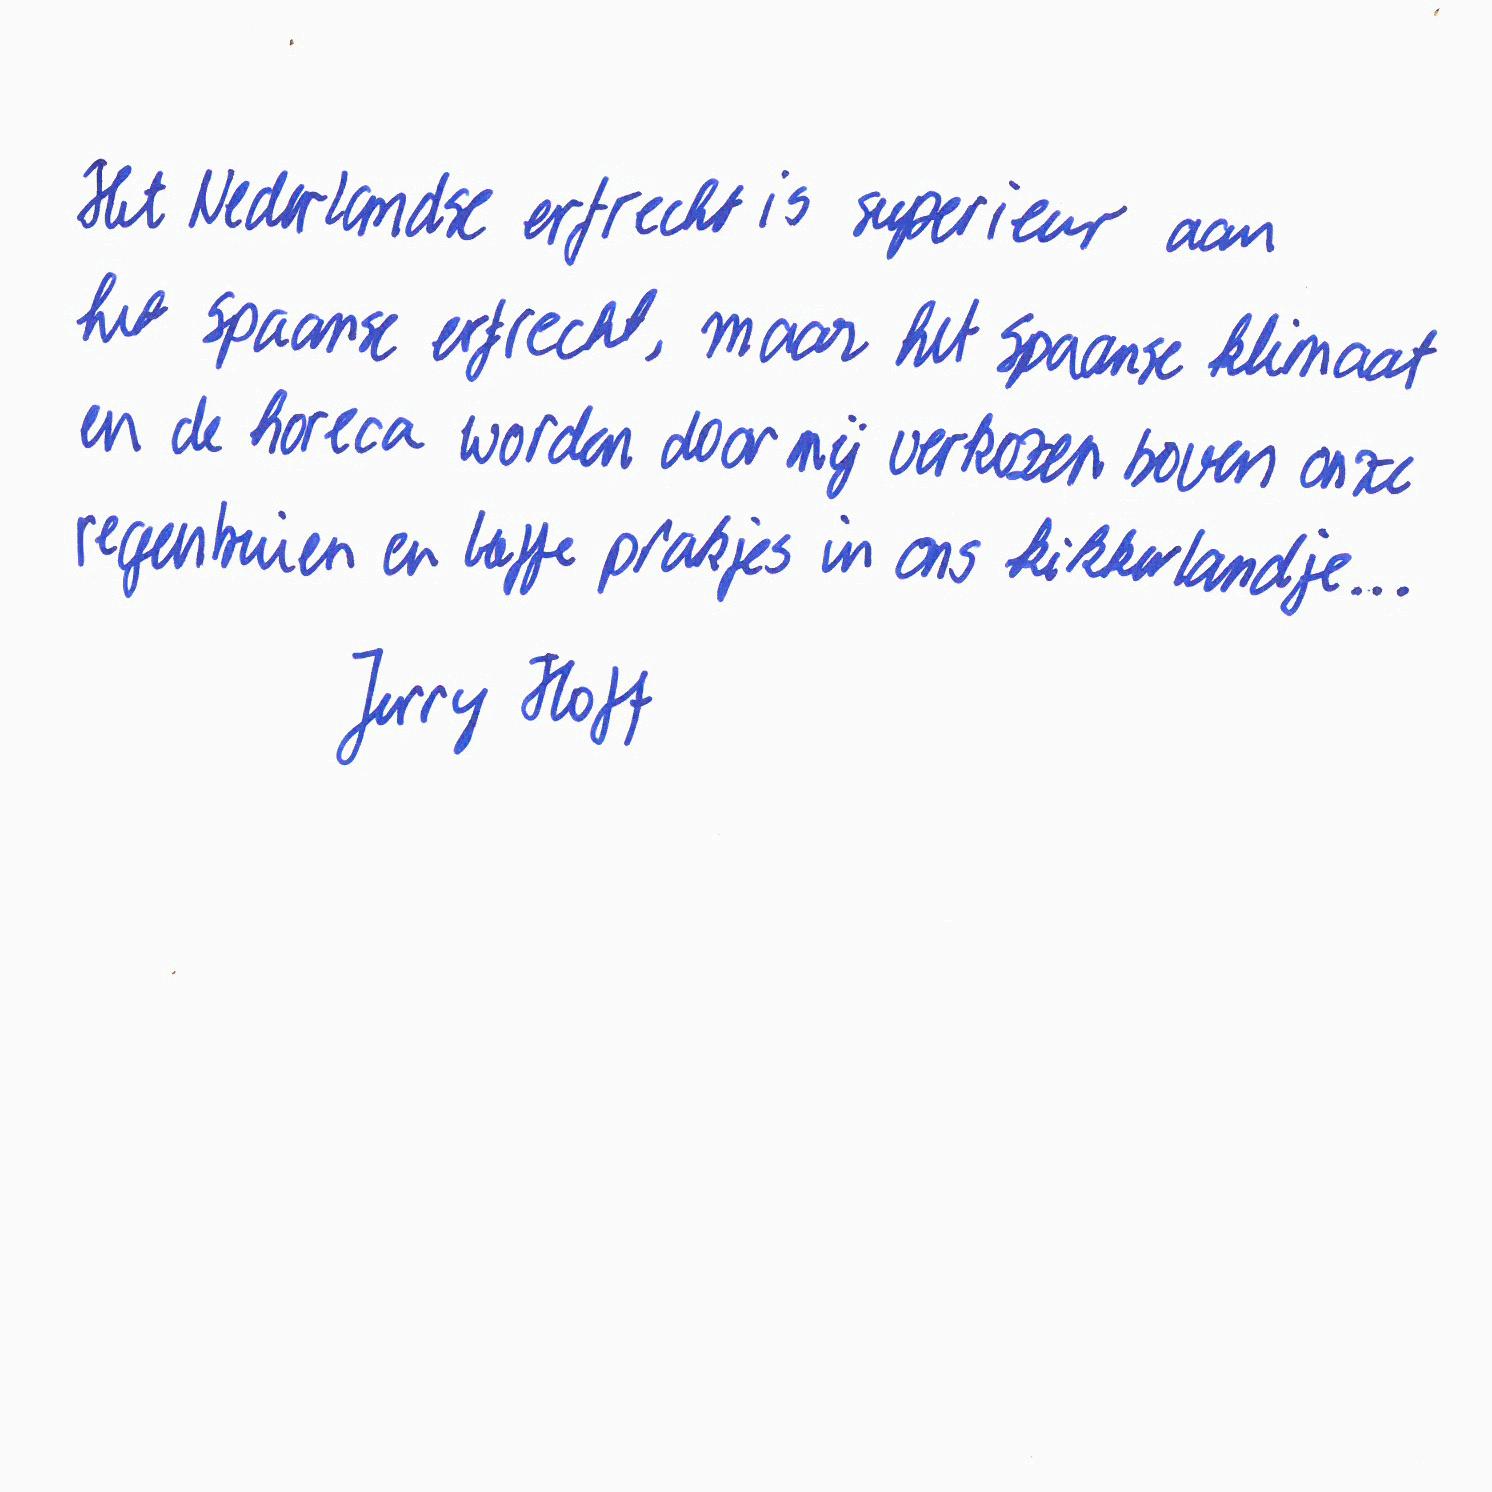 Het Nederlandse erfrecht is superieur aan
het spaanse erfrecht, maar het spaanse klimaat
en de horeca worden door mij verkozen boven onze
regenbuien en laffe prakjes in ons kikkerlandje...
Jerry Hoff